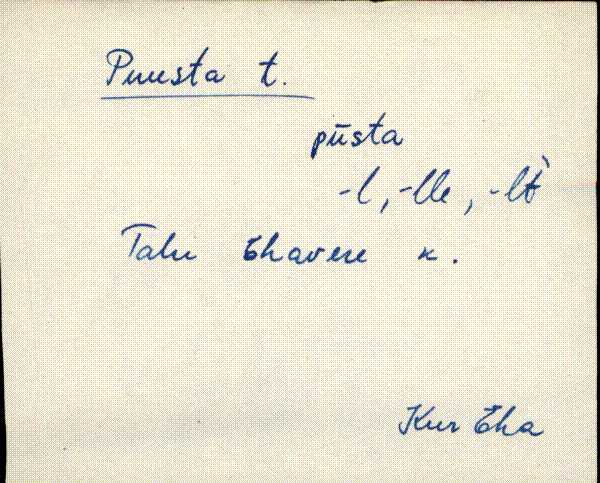 Puusta t.
pūsta
-l, -lle, -lt̀
Talu Ehavere k.
Kur Eha